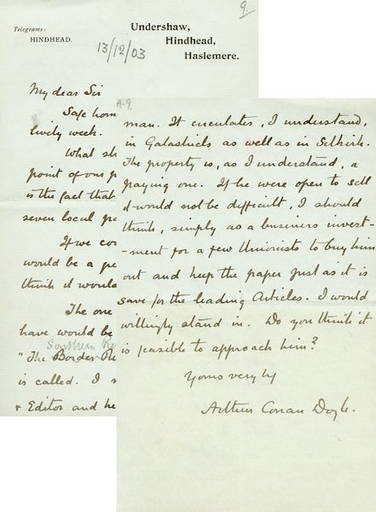 9
Telegrams:
HINDHEAD.
Undershaw,
Hindhead,
Haslemere.
13/12/03
My dear Sir
Safe hom
lively week.
What sh
point of our p
is the fact that
seven local
If we con
would be a
think it would
The one
have would be
Southern
"The Border Re
is called. I
+ Editor and he
man. It circulates, I understand,
in Galashiels as well as in Selkirk.
The property is, as I understand, a
paying one. If he were open to sell
it would not be difficult, I should
think, simply as a business invest-
-ment for a few Unionists to buy him
out and keep the paper just as it is
save for the leading Articles. I would
willingly stand in. Do you think it
is feasible to approach him?
Yours very ly
Arthur Conan Doyle.